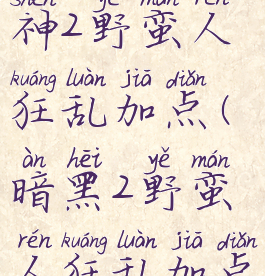 shén yě mán rén
神2野蛮人
kuáng luàn jiā diǎn
狂乱加点(
àn hēi yě mán
暗黑2野蛮
rén kuáng luàn jiā diǎn
人狂乱加点